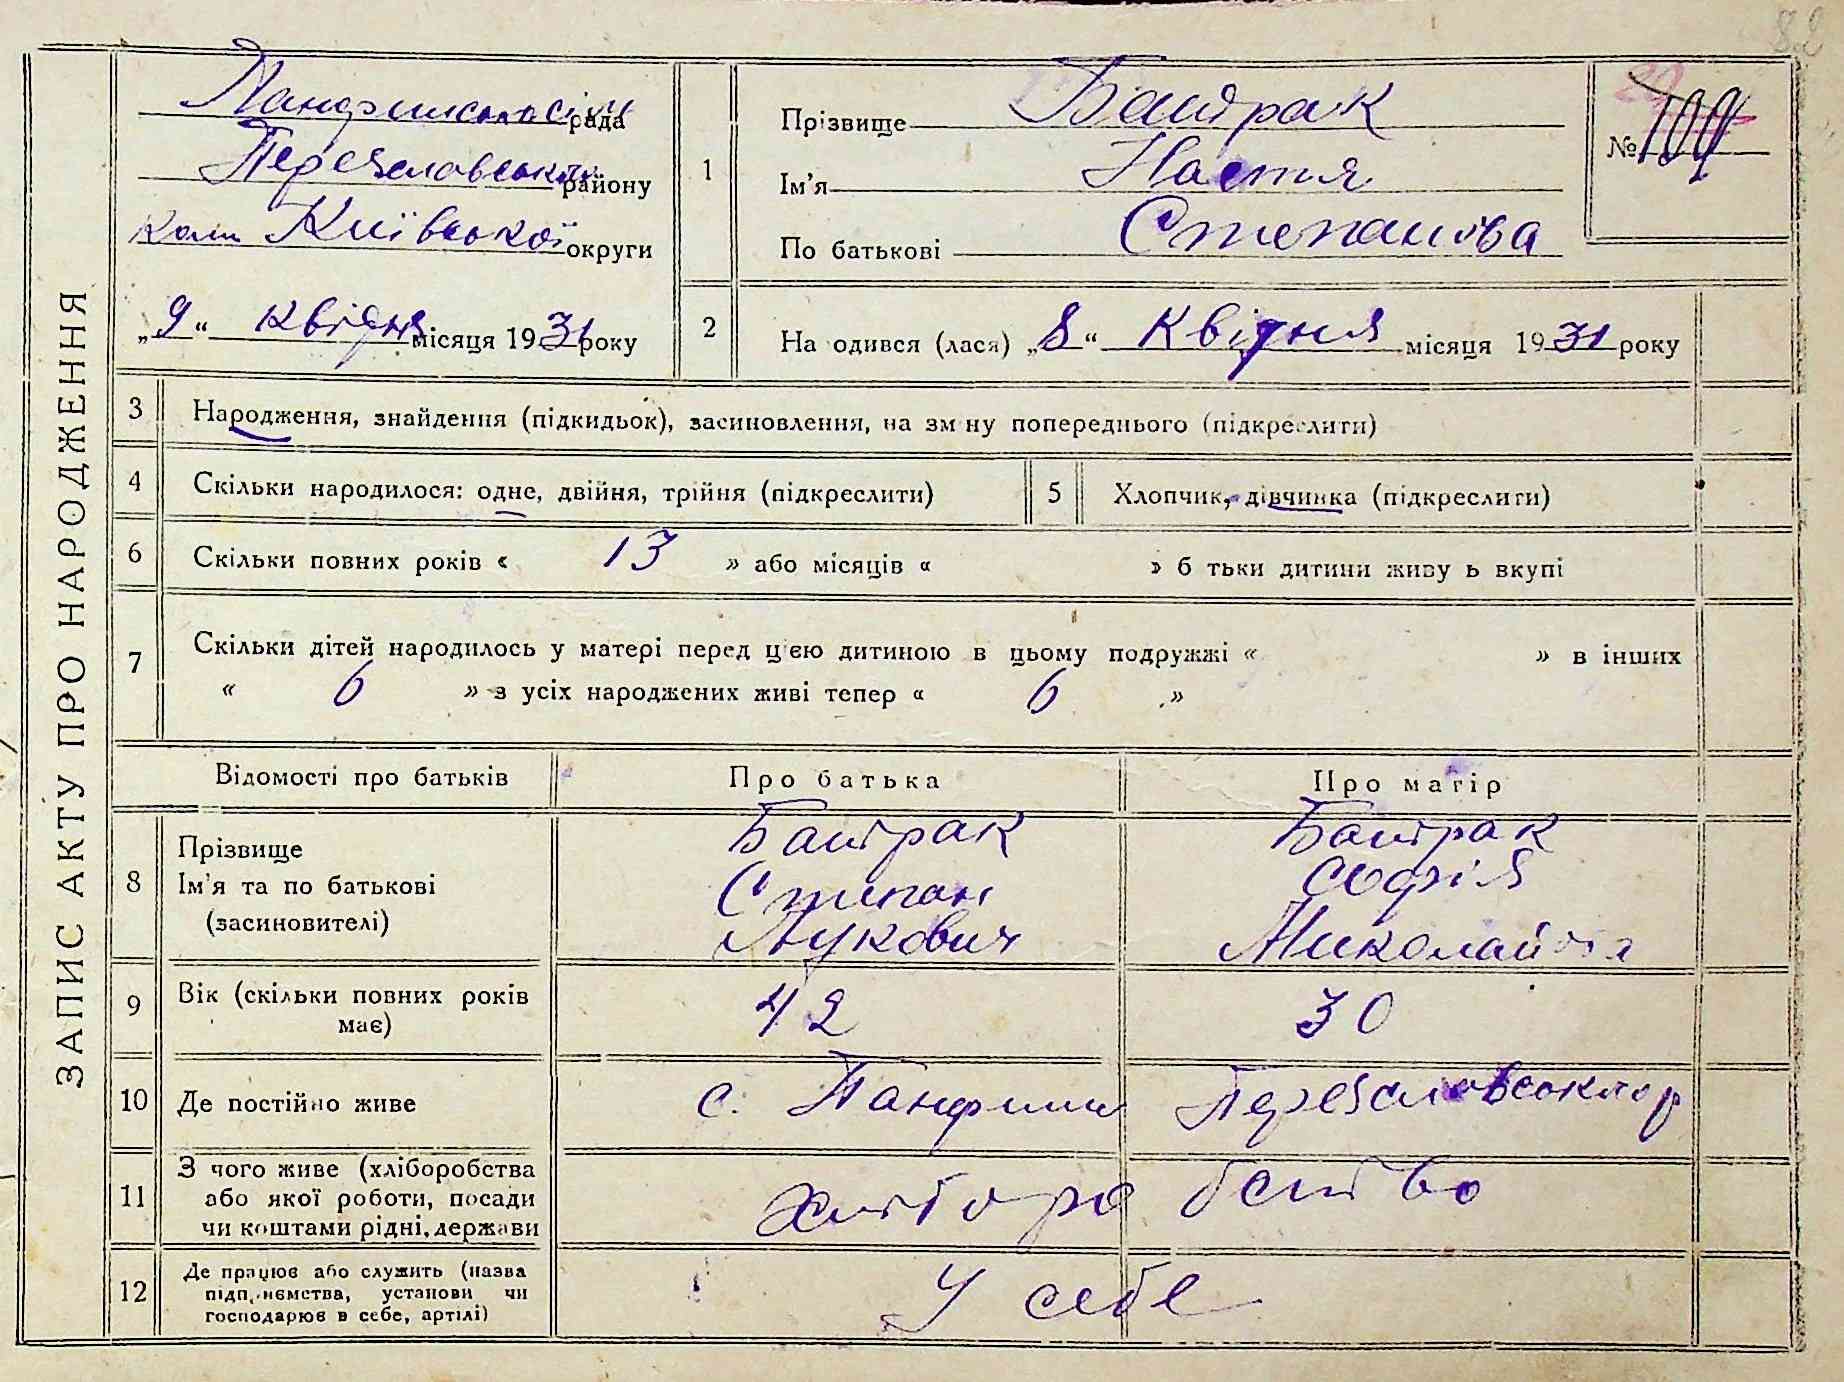 82
ЗАПИС АКТУ ПРО НАРОДЖЕННЯ
рада
Переяславського району
кол. Київської округи
„9“ квідня місяця 1931 року
1
Прізвище Батрак
Ім'я Настя
По батькові Степанова
№
2
На одився (лася) „8“ Квідня місяця 1931 року
3 Народження, знайдення (підкидьок), засиновлення, на зм ну попереднього (підкреслити)
4 Скільки народилося: одне, двійня, трійня (підкреслити)
5 Хлопчик, дівчинка (підкреслити)
6 Скільки повних років « 13 » або місяців « » б тьки дитини живу ь вкупі
7 Скільки дітей народилось у матері перед цією дитиною в цьому подружжі « » в інших
« 6 » з усіх народжених живі тепер « 6 »
Відомості про батьків
Про батька
Про матір
8 Прізвище
Ім'я та по батькові
(засиновителі)
Батрак
Степан
Лукович
Батрак
Софія
9 Вік (скільки повних років
має)
42
30
10 Де постійно живе
с. Панфили Переяславського р
11 З чого живе (хліборобства
або якої роботи, посади
чи коштами рідні, держави
хліборобство
12 Де працює або служить (назва
підприємства, установи чи
господарює в себе, артілі)
У себе